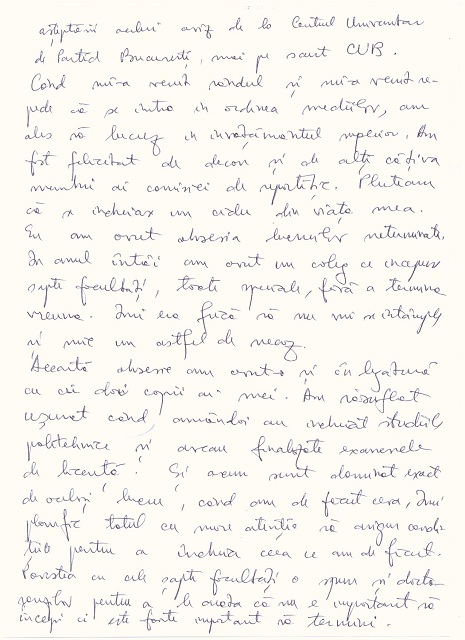 așteptării acelui aviz de la Centrul Universitar
de Partid București, mai pe scurt CUB.
Când mi-a venit rândul și mi-a venit re-
pede că se intra în ordinea mediilor, am
ales să lucrez în învățământul superior. Am
fost felicitat de decan și de alți câțiva
membri ai comisiei de repartiție. Pluteam
că se încheiase un ciclu din viața mea.
Eu am avut obsesia lucrurilor neterminate.
În anul întâi am avut un coleg ce începuse
șapte facultăți, toate speciale, fără a termina
vreuna. Îmi era frică să nu mi se întâmple
și mie un astfel de necaz.
Această obsesie am avut-o și în legătură
cu cei doi copii ai mei. Am răsuflat
ușurat când amândoi au încheiat studiile
politehnice și aveau finalizate examenele
de licență. Și acum sunt dominat exact
de același lucru, când am de făcut ceva, îmi
planific totul cu mare atenție să asigur condi-
țiile pentru a încheia ceea ce am de făcut.
Povestea cu cele șapte facultăți o spun și docto-
ranzilor pentru a le arăta că nu e important să
începi ci este foarte important să termini.